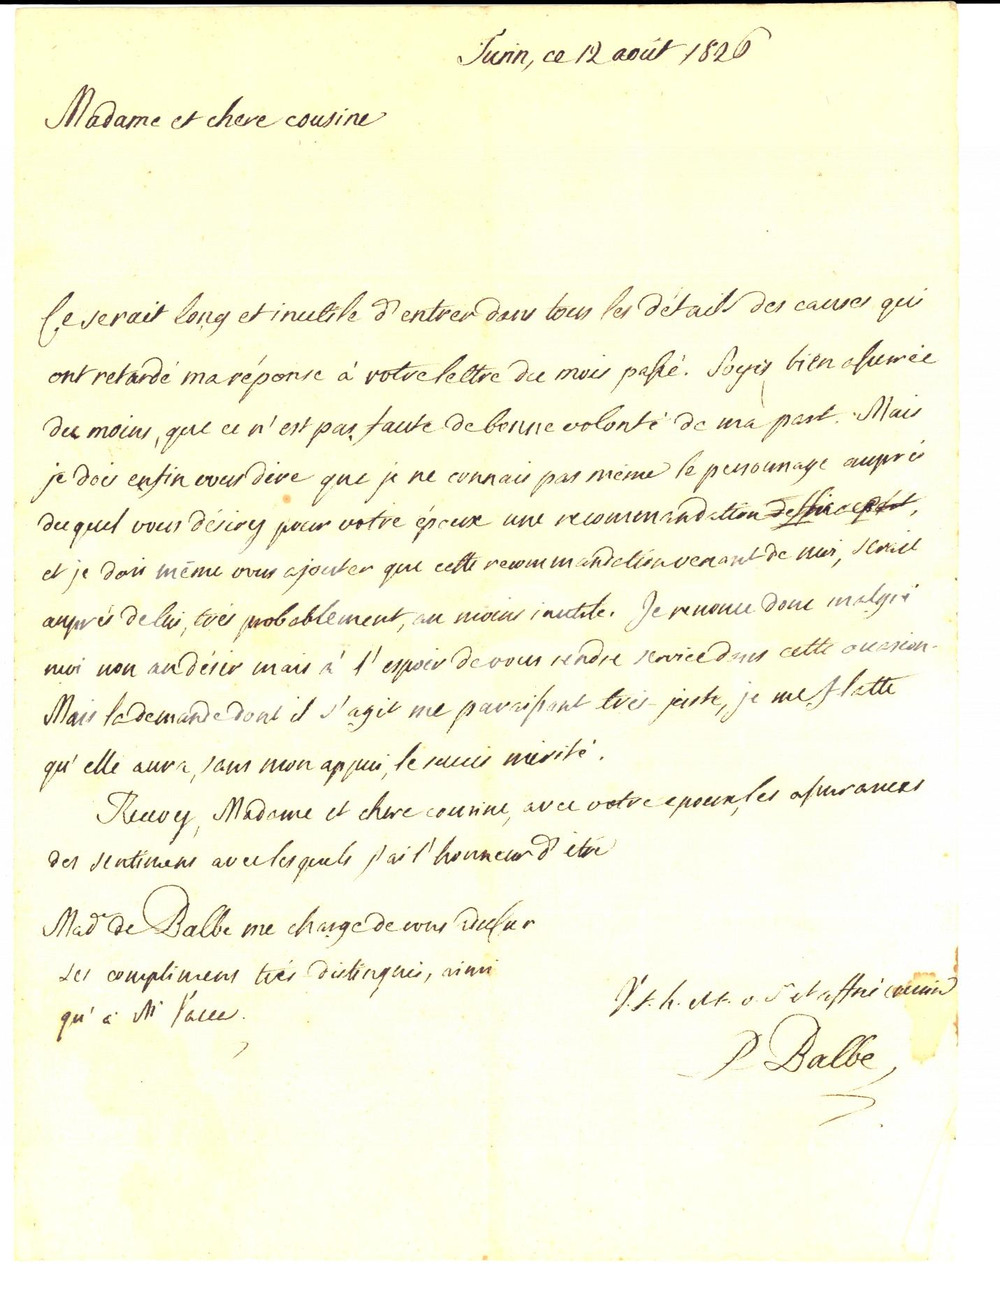 Turin, ce 12 août 1826
Madame et chere cousine
Ce serait long et inutile d'entrer dans tous les détails des causes qui
ont retardé ma réponse à votre lettre du mois passé. Soyez bien assurée
du moins, que ce n'est pas faute de bonne volonté de ma part. Mais
je dois enfin vous dire que je ne connais pas même le personnage auprès
duquel vous désirez pour votre époux une recommandation
et je dois même vous ajouter que cette recommandation venant de moi, serait
auprès de lui, très probablement, au moins inutile. Je renonce donc malgré
moi non au désir mais à l'espoir de vous rendre service dans cette occasion.
Mais la demande dont il s'agit me paraissant très-juste, je me flatte
qu'elle aura, sans mon appui, le succès mérité.
Recevez, Madame et chere cousine, avec votre epoux, les assurances
des sentimens avec lesquels j'ai l'honneur d'être
Made de Balbe me charge de vous
ses complimens très distingués, ainsi
qu'à Mr
V. t. h. et t. o. S. et affné cousin
P Balbe